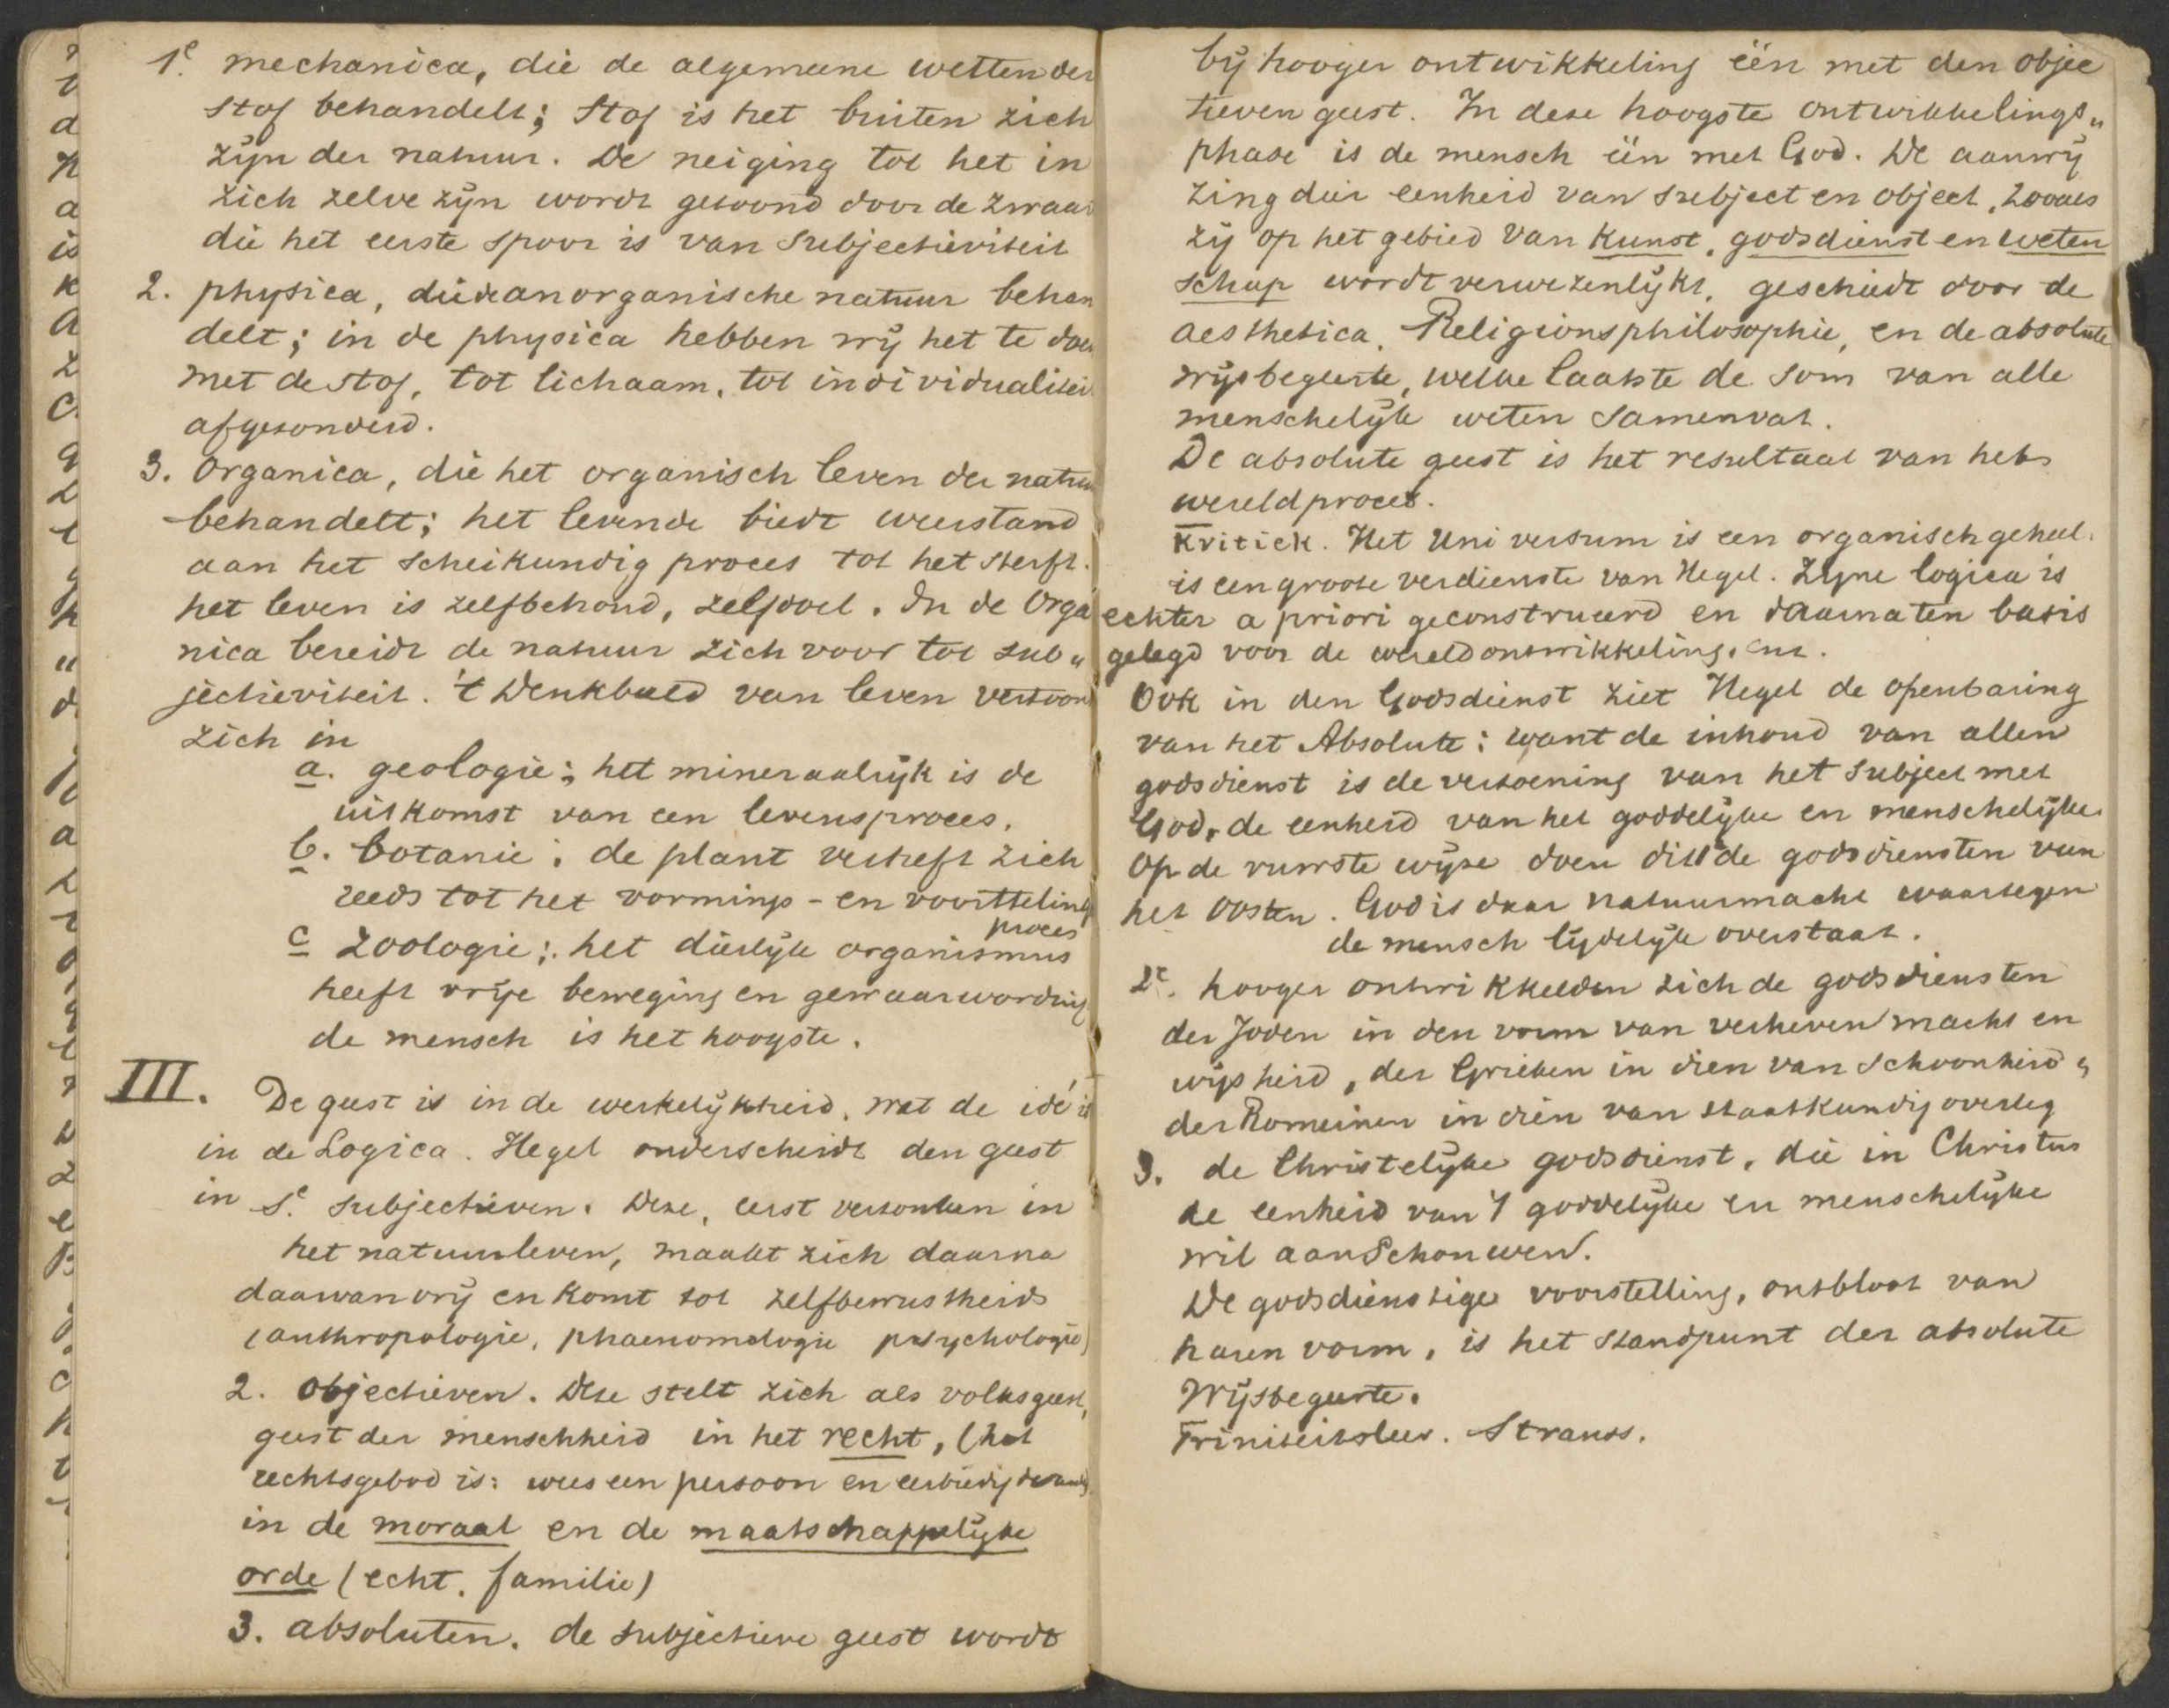 1e. mechanica, die de algemeene wetten der
stof behandelt; Stof is het buiten zich
zijn der natuur. De neiging tot het in
zich zelve zijn wordt getoond door de zwaar
die het eerste spoor is van subjectieviteit
2. physica, die de anorganische natuur behan
delt; in de physica hebben wij het te doen
met de stof, tot lichaam, tot individualiteit
afgezonderd.
3. Organica, die het organisch leven der natuur
behandelt; het levende biedt weerstand
aan het scheikundig proces tot het sterft.
het leven is zelfbehoud, zelfdoel. In de Orga
nica bereidt de natuur zich voor tot sub„
jectieviteit. 't Denkbeeld van leven vertoont
zich in
a. geologie; het mineraalrijk is de
uitkomst van een levensproces.
b. botanie; de plant verheft zich
reeds tot het vormings- en voorttelings
proces
c zoologie; het dierlijk organismus
heeft vrije beweging en gewaarwording
de mensch is het hoogste.
III. De geest is in de werkelijkheid, wat de idé is
in de Logica. Hegel onderscheidt den geest
in S.e subjectieven. Deze, eerst verzonken in
het natuurleven, maakt zich daarna
daarvan vrij en komt tot zelfbewustheid
(anthropologie, phaenomologie psychologie)
2. objectieven. Deze stelt zich als volksgeest,
geest der menschheid in het recht, (het
rechtsgebod is: wees een persoon en eerbiedig de and)
in de moraal en de maatschappelijke
orde (echt, familie)
3. absoluten. de subjectieve geest wordt
bij hooger ontwikkeling één met den objec
tieven geest. In deze hoogste ontwikkelings„
phase is de mensch één met God. De aanwij
zing dier eenheid van subject en object, zooals
zij op het gebied van kunst, godsdienst en weten
schap wordt verwezenlijkt, geschiedt door de
aesthetica, Religionsphilosophie, en de absolute
wijsbegeerte, welke laatste de som van alle
menschelijk weten samenvat.
De absolute geest is het resultaat van het
wereldproces.
Kritiek. Het Universum is een organisch geheel.
is een groote verdienste van Hegel. Zijne logica is
echter a priori geconstrueerd en daarna ten basis
gelegd voor de wereldontwikkeling. enz.
Ook in den Godsdienst ziet Hegel de openbaring
van het Absolute: want de inhoud van allen
godsdienst is de verzoening van het subject met
God, de eenheid van het goddelijke en menschelijke.
Op de ruwste wijze doen dit 1° de godsdiensten van
het Oosten. God is daar natuurmacht waartegen
de mensch lijdelijk overstaat.
2e. hooger ontwikkelden zich de godsdiensten
der Joden in den vorm van verheven macht en
wijsheid, der Grieken in dien van schoonheid,
der Romeinen in dien van staatkundig overleg
3. de Christelijke godsdienst, die in Christus
de eenheid van 't goddelijke en menschelijke
wil aanschouwen.
De godsdienstige voorstelling, ontbloot van
haren vorm, is het standpunt der absolute
Wijsbegeerte.
Triniteitsleer. Strauss.